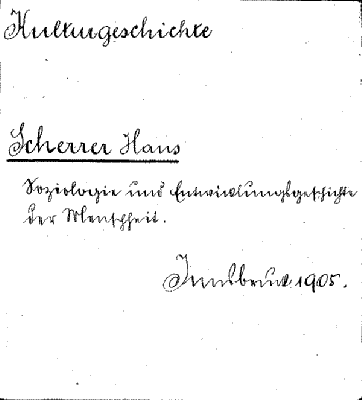 Kulturgeschichte
Scherrer Hans
Soziologie und Entwicklungsgeschichte
der Menschheit.
Innsbruck 1905.